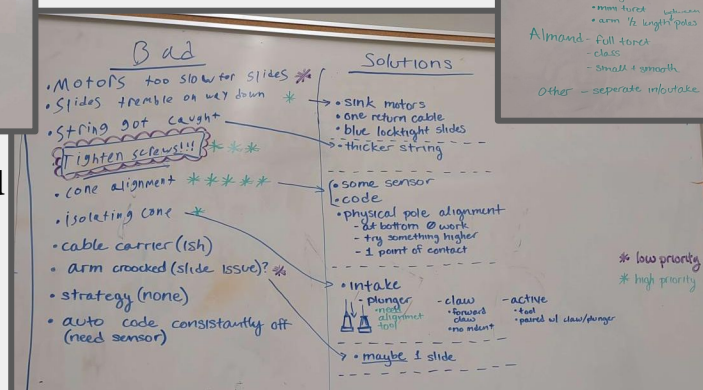 Bad
• Motors too slow for slides *
• Slides tremble on way down *
• String got caught
Tighten screws!!! * * *
• cone alignment * * * * *
• isolating cone *
• cable carrier (ish)
• arm croocked (slide issue)? *
• strategy (none)
• auto code consistantly off
(need sensor)
Solutions
• sink motors
• one return cable
• blue locktight slides
• thicker string
• some sensor
• code
• physical pole alignment
- at bottom Ø work
- try something higher
- 1 point of contact
• intake
- plunger
• need
alignmet
tool
- claw
• forward
claw
• no indent
- active
• tool
• paired w/ claw/plunger
• maybe 1 slide
* low priority
* high priority
• arm ½ length poles
Almand - full toret
- class
- small + smooth
Other - seperate in/outake